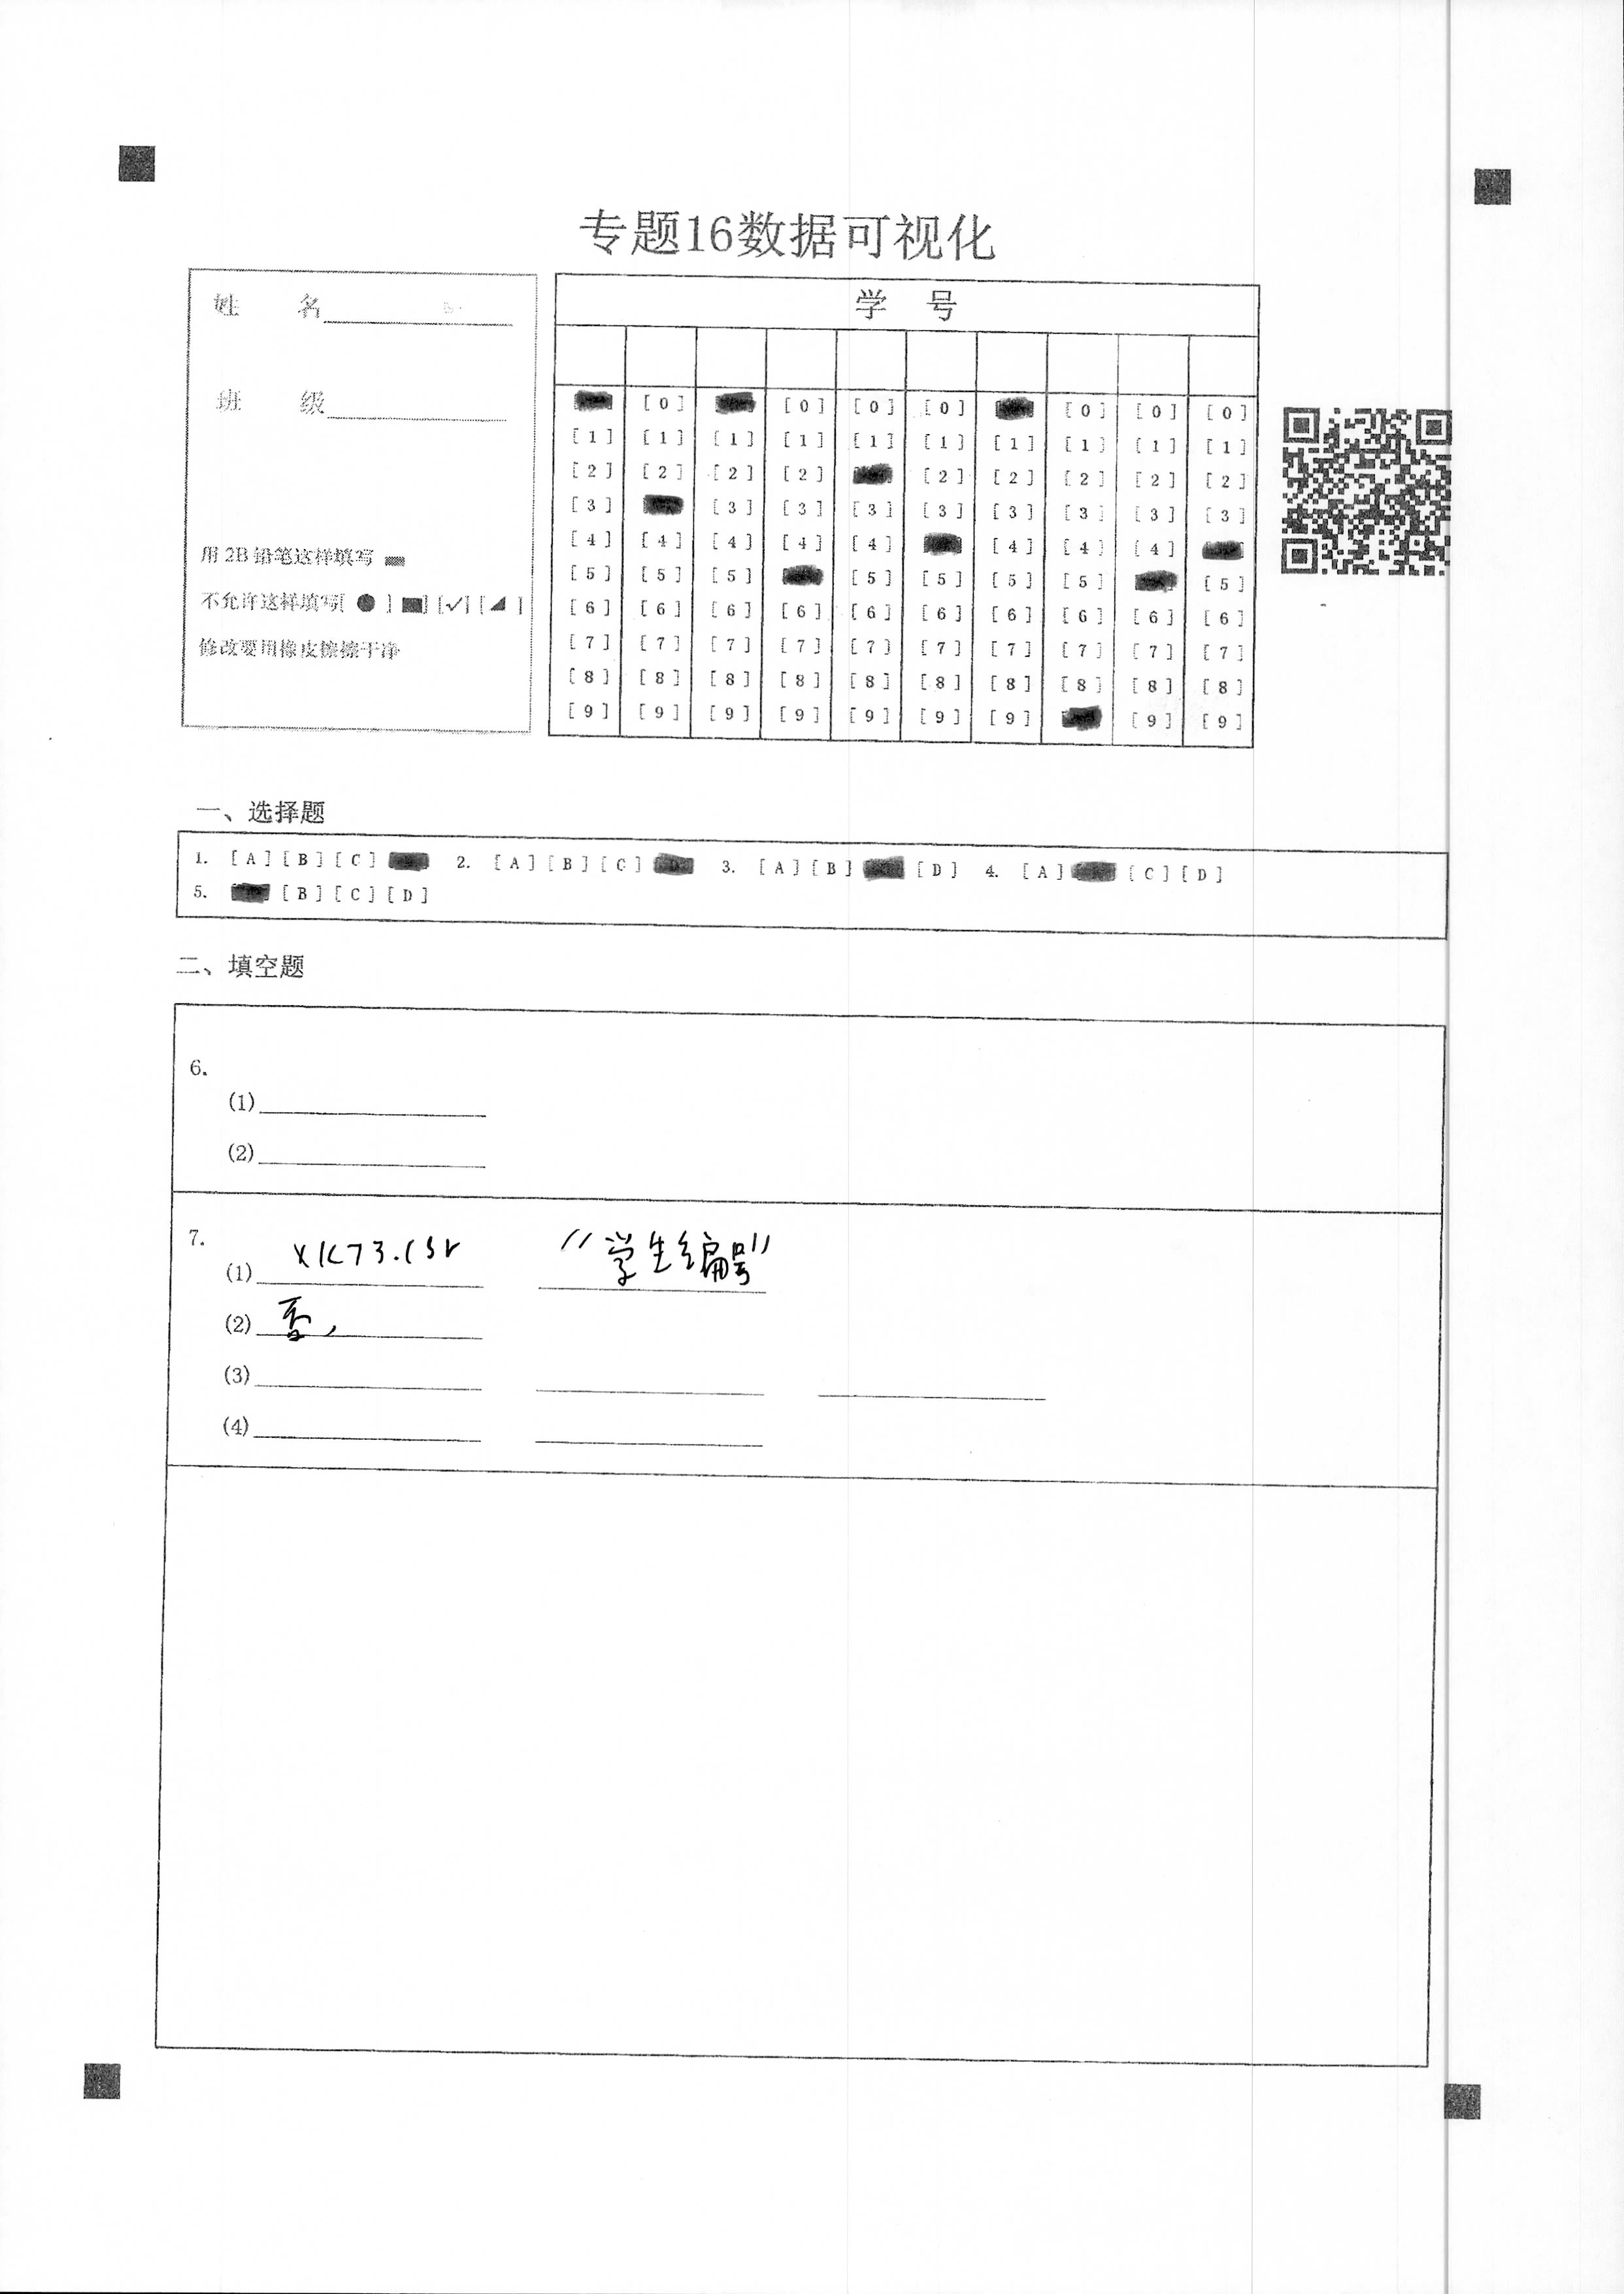 专题16数据可视化
姓 名
班 级
用2B铅笔这样填写
不允许这样填写[ ● ] [■] [✓] [◢ ]
修改要用橡皮擦擦干净
学 号
[0] [0] [0] [0] [0] [0] [0]
[1] [1] [1] [1] [1] [1] [1] [1] [1] [1]
[2] [2] [2] [2] [2] [2] [2] [2] [2]
[3] [3] [3] [3] [3] [3] [3] [3] [3]
[4] [4] [4] [4] [4] [4] [4] [4]
[5] [5] [5] [5] [5] [5] [5] [5]
[6] [6] [6] [6] [6] [6] [6] [6] [6] [6]
[7] [7] [7] [7] [7] [7] [7] [7] [7] [7]
[8] [8] [8] [8] [8] [8] [8] [8] [8] [8]
[9] [9] [9] [9] [9] [9] [9] [9] [9]
一、选择题
1. [A] [B] [C] 2. [A] [B] [C] 3. [A] [B] [D] 4. [A] [C] [D]
5. [B] [C] [D]
二、填空题
6.
(1)
(2)
7.
(1) xk73.csv "学生编号"
(2) 否,
(3)
(4)